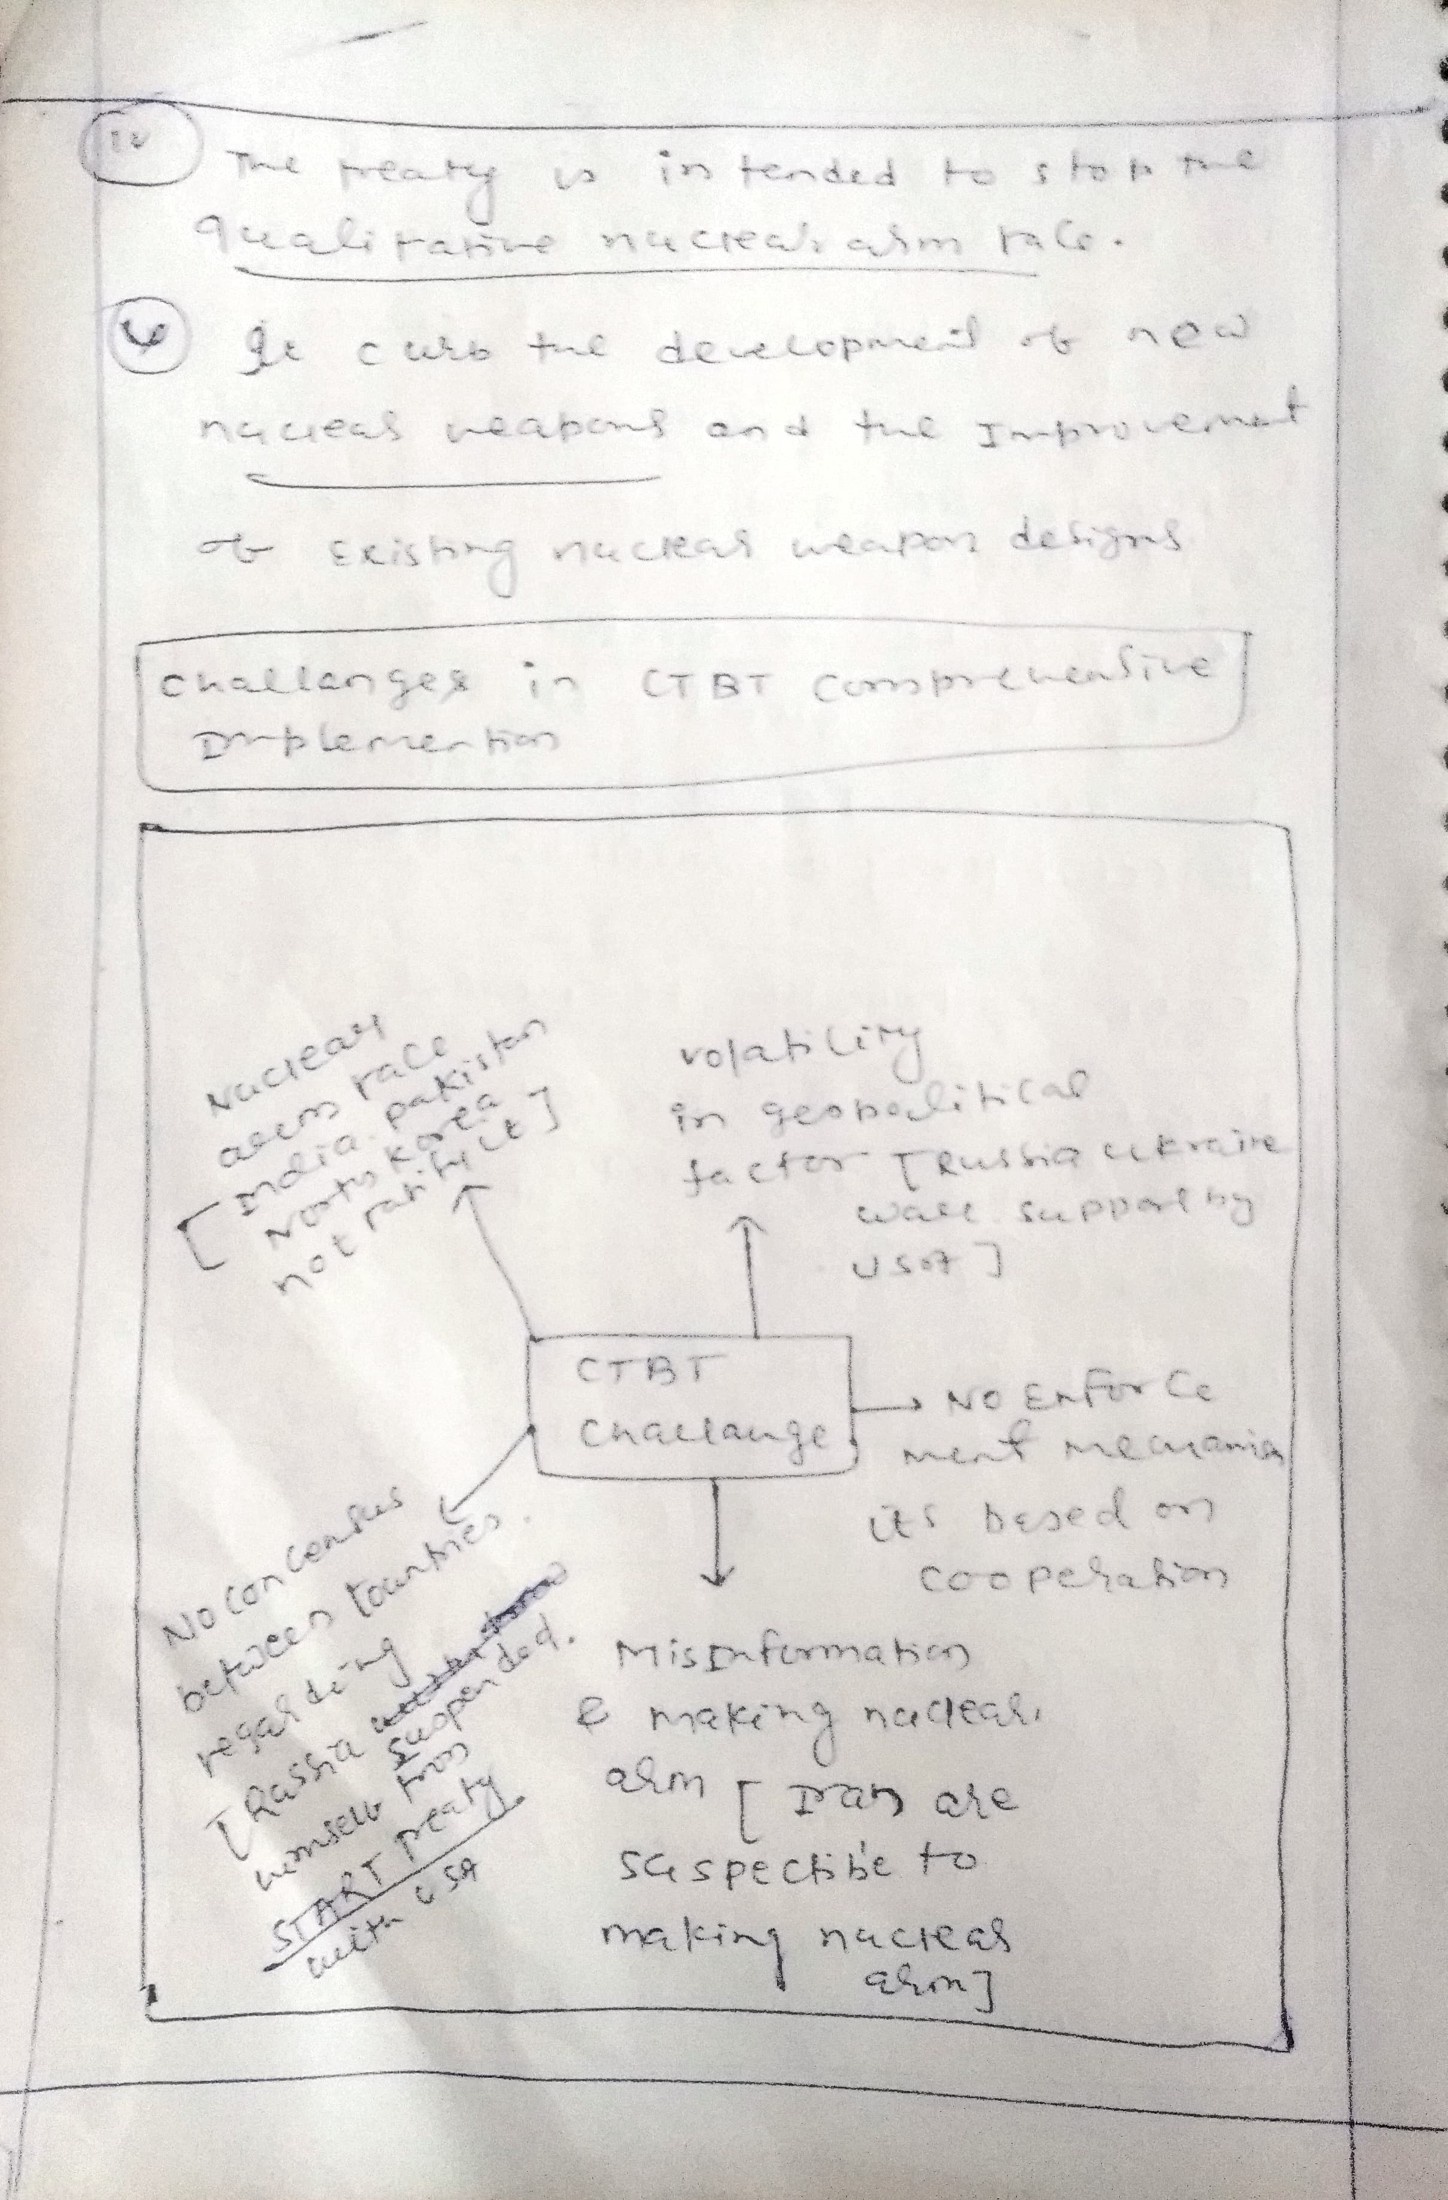 The treaty is intended to stop the
qualitative nuclear arm race.
It curb the development of new
nuclear weapons and the Improvement
of Existing nuclear weapon designs
Challanges in CTBT comprehensive
Implemention
Nuclear
arems race
[India pakistan
North Korea
not ratify it]
volatility
in geopolitical
factor [Russia ukraine
ware support by
USA]
CTBT
Challange
→ NO EnForce
ment mechanism
its based on
cooperation
No concensus
between countries.
regarding
[Russia suspended.
himself from
START treaty
with USA
MisInformation
& making nuclear
arm [Iran are
suspectible to
making nuclear
arm]